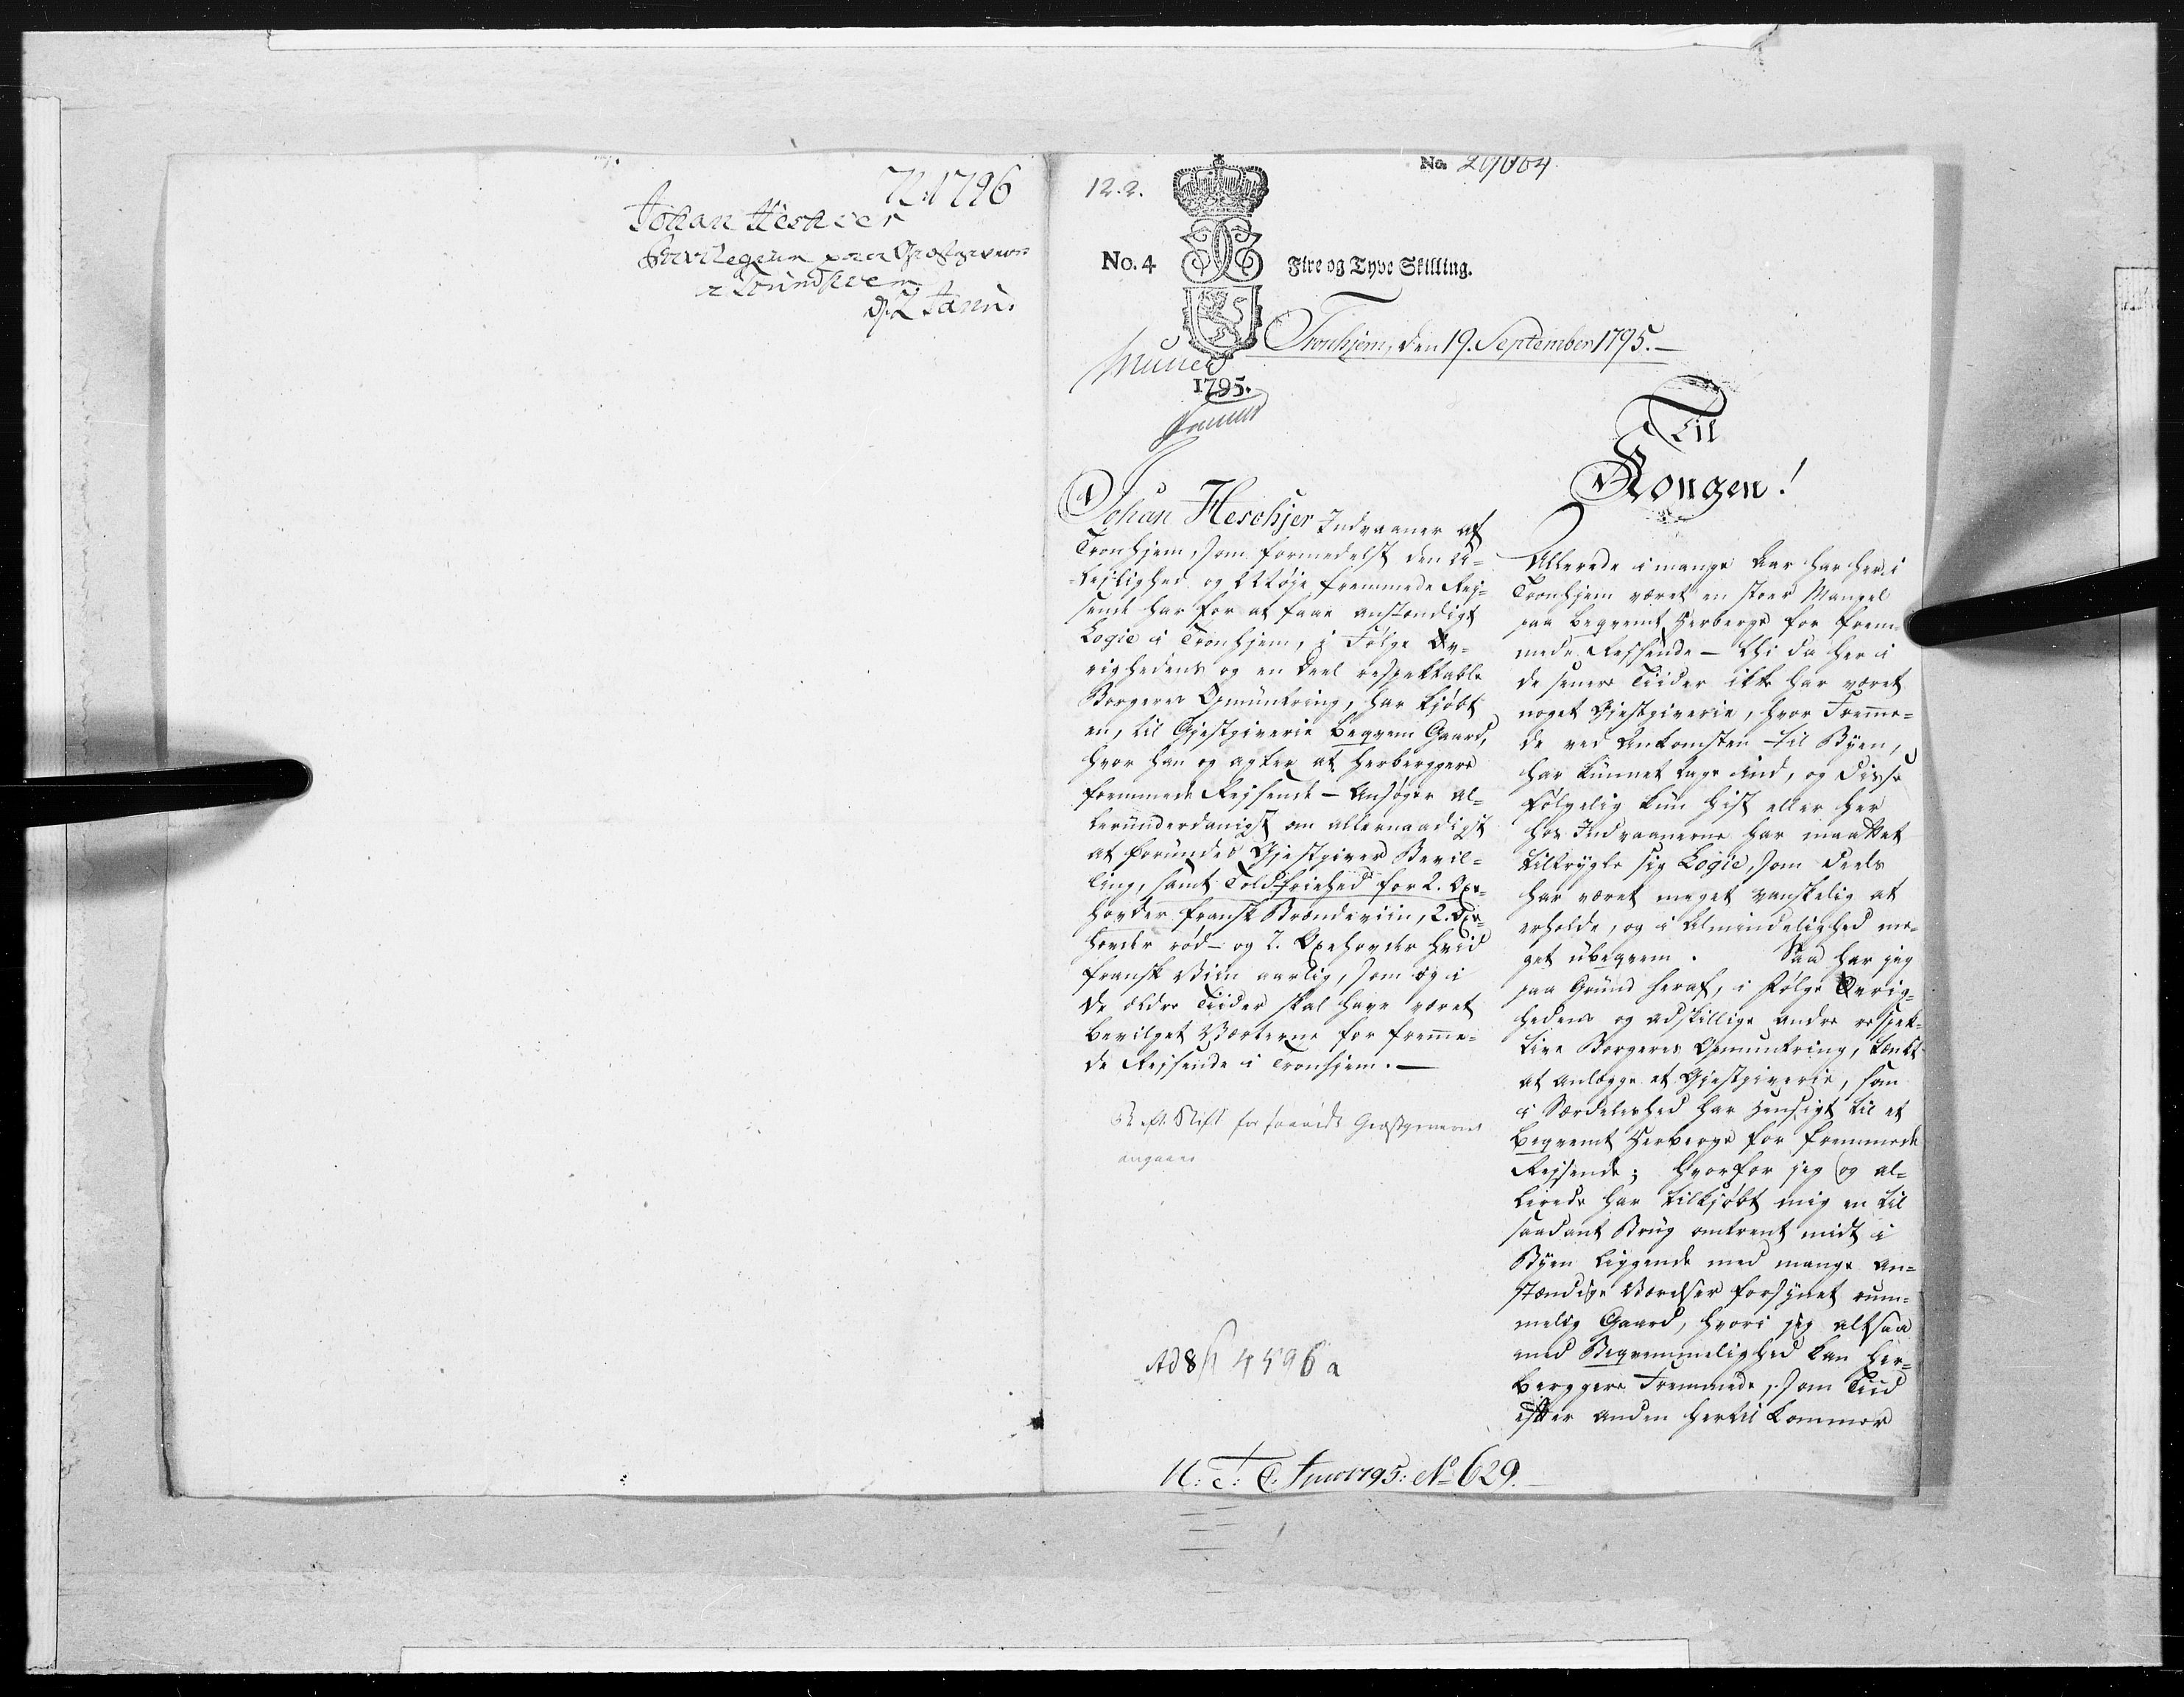 72.1796
Johan Heskier
Privilegium paa Giæstgiverie
i Trundhiem
d. 2 Janu.
12.2.
No. 29004
No. 4
Fire og Tyve Skilling.
Tronhjem, den 19. September 1795.
1795.
Til
Kongen!
Johan Heschjer Indvaaner af
Tronhjem, som formedelst den U-
lejlighed og Utøje fremmede Rej-
sende har for at faae anstændigt
Logie i Tronhjem, i Følge Øv-
righedens og en Deel respektable
Borgeres Opmuntring, har kjøbt
en, til Gjestgiverie beqvem Gaard,
hvor han og agter at herberggere
fremmede Rejsende - Ansøger al-
lerunderdanigst om allernaadigst
at forundes Gjestgiver Bevil-
ling, samt Toldfriehed for 2. Oxe-
hovder fransk Brændeviin, 2. Oxe-
hovder rød- og 2. Oxehovder hvid
fransk Viin aarlig, som og i
de ældre Tiider skal have været
bevilget Værterne for fremme-
de Rejsende i Tronhjem. -
angaaer
Ad 8 4596 a
N: T: C. 1795: No 629.
Allerede i mange Aar har her i
Tronhjem været en stoer Mangel
paa beqvemt Herberge for frem-
mede Rejsende - thi da her i
de senere Tiider ikke har været
noget Gjestgiverie, hvor Fremme-
de ved Ankomsten til Byen,
har kunnet tage ind, og disse
følgelig kun hist eller her
hos Indvaanerne har maattet
tiltrygle sig Logie, som deels
har været meget vanskelig at
erholde, og i Almindelighed me-
get ubeqvem. Saa har jeg
paa Grund heraf, i Følge Øvrig-
hedens og adskillige andre respek-
tive Borgeres Opmuntring, tænkt
at anlægge et Gjestgiverie, som
i Særdeleshed har Hensigt til et
beqvemt Herberge for fremmede
Rejsende; hvorfor jeg og al-
lerede har tilkjøbt mig en til
saadant Brug omtrent midt i
Byen liggende med mange an-
stændige Værelser forsynet rum-
melig Gaard, hvori jeg altsaa
med Beqvemmelighed kan her-
berggere Fremmede, som Tiid
efter anden hertil kommer